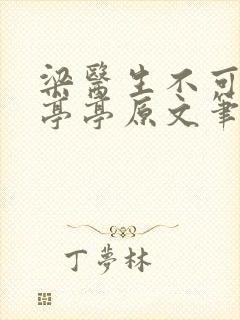 梁醫生不可
亭亭原文筆
丁夢林